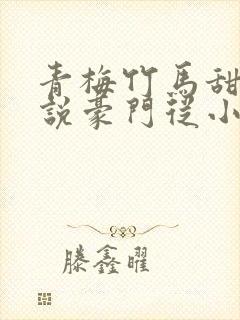 青梅竹馬甜
說豪門從小
滕鑫曜